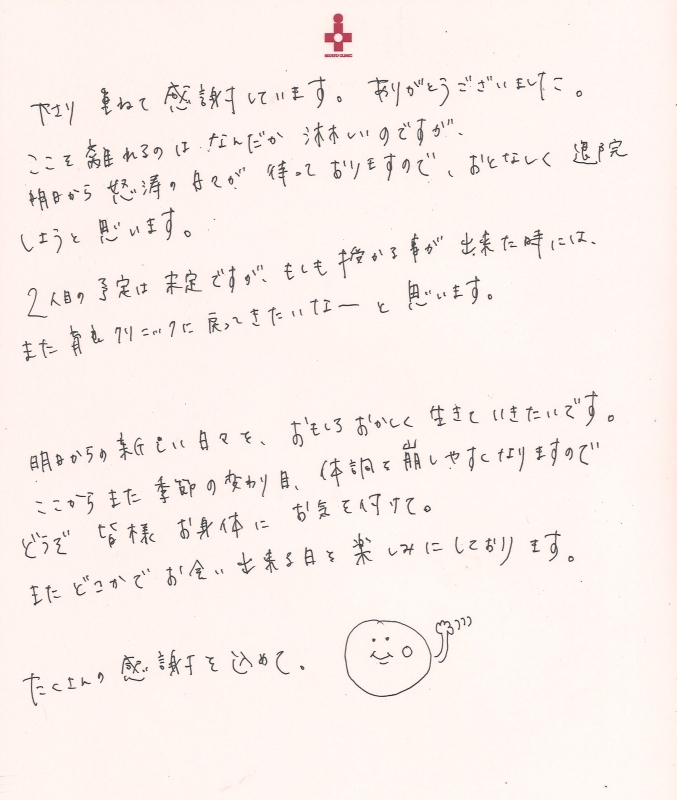 やはり 重ねて 感謝しています。 ありがとうございました。
ここを 離れるのは なんだか 淋しいのですが、
明日から 怒涛の日々が 待って おりますので、 おとなしく 退院
しようと 思います。
2人目の 予定は 未定ですが、もしも 授かる事が 出来た時には、
また クリニックに 戻ってきたいなーと 思います。
明日からの 新しい 日々を、 おもしろ おかしく 生きて いきたいです。
ここから また 季節の変わり目、体調を 崩しやすくなりますので
どうぞ 皆様 お身体に お気を付けて。
またどこかで お会い 出来る日を 楽しみにしております。
たくさんの 感謝を 込めて。